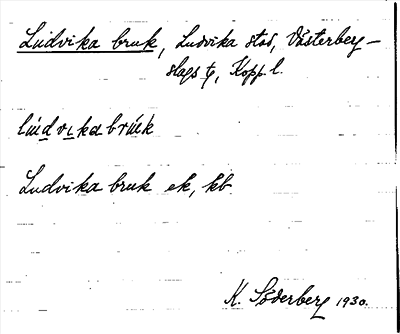 Ludvika bruk, Ludvika stad, Västerberg–
slags tg, Kopp. l.
lúdvika brúk
Ludvika bruk ek, kb
K. Söderberg 1930.